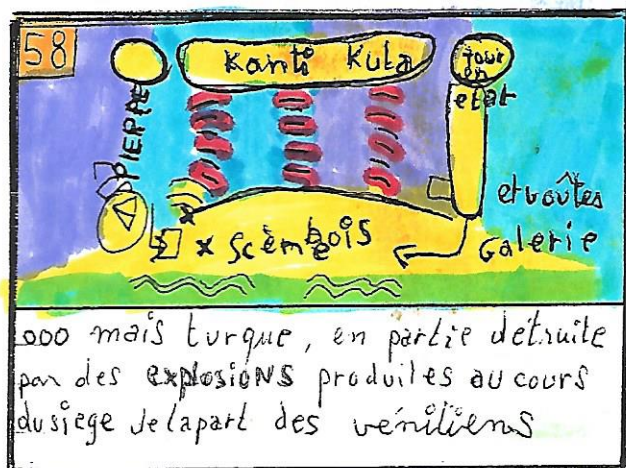 58
Kanti Kula
Tour
en
etat
PIERRE
et voûtes
Galerie
x Scèm bois
000 mais turque, en partie détruite
par des explosions produites au cours
du siege de la part des vénitiens